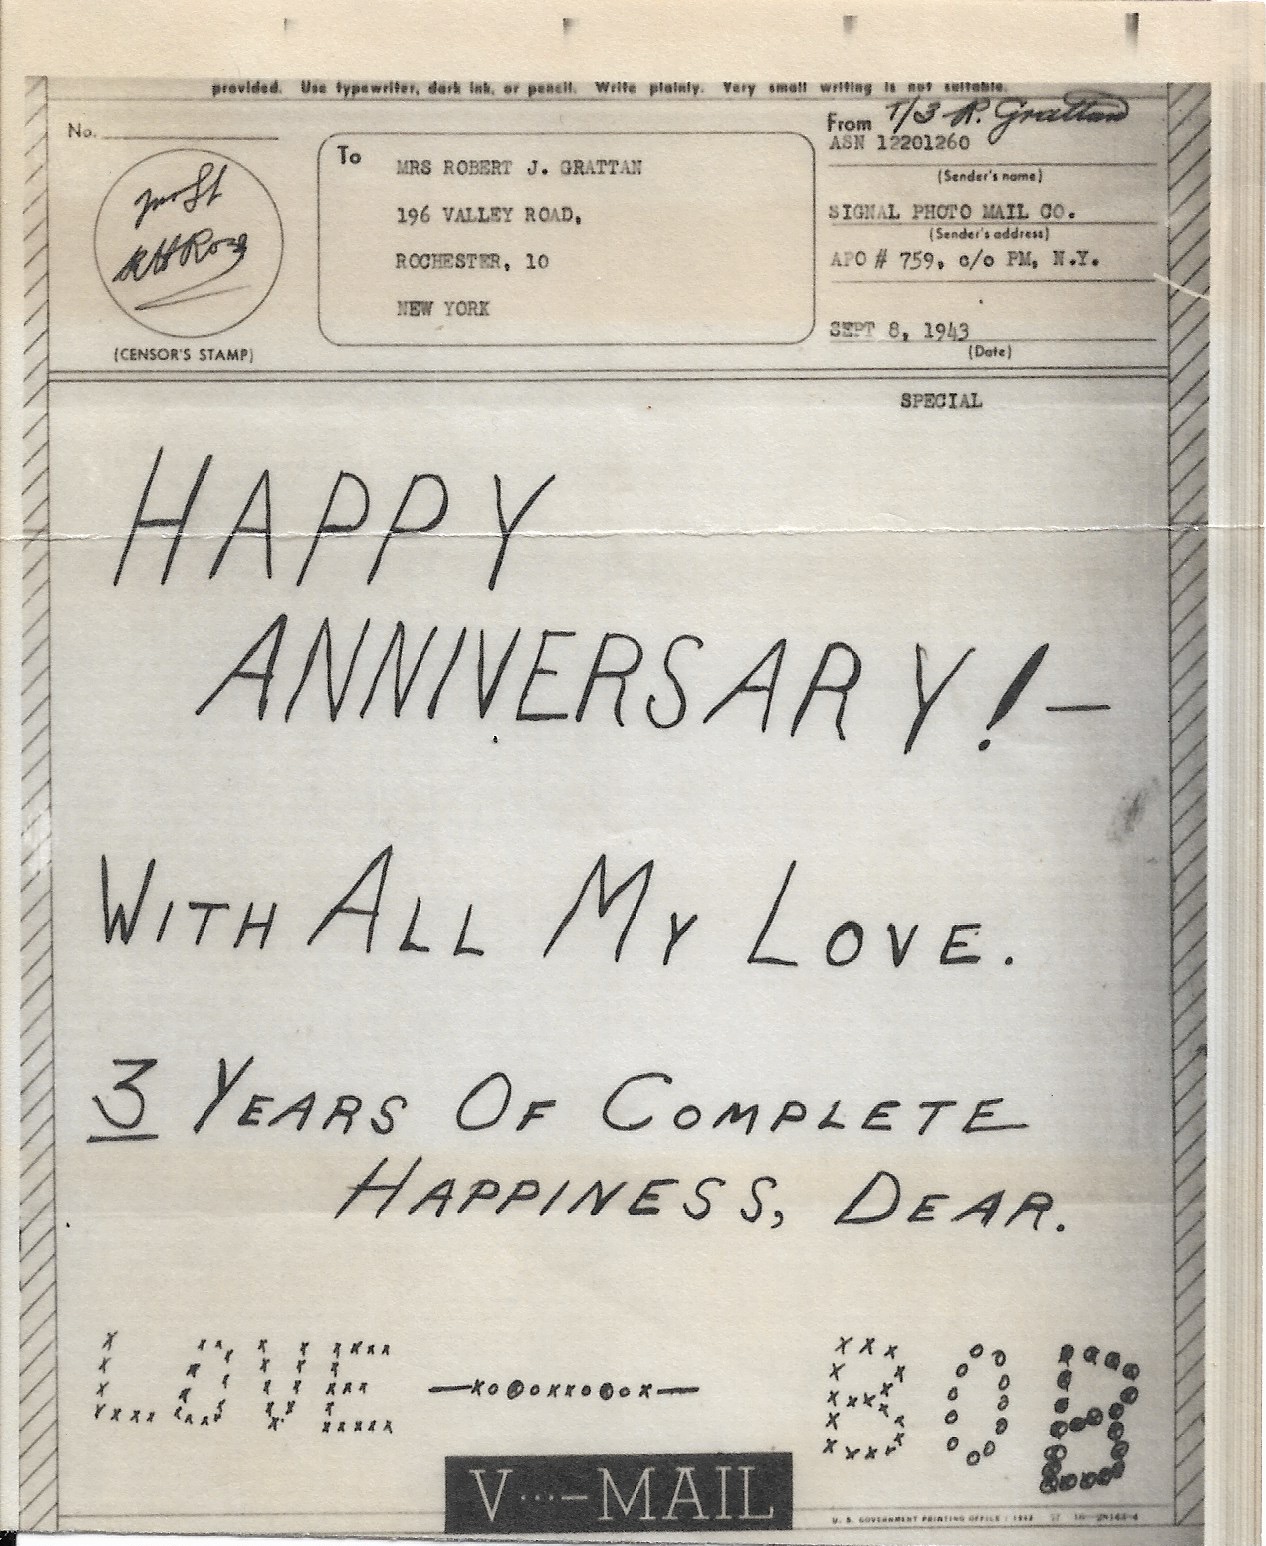 provided. Use typewriter, dark ink, or pencil. Write plainly. Very small writing is not suitable.
No.
(CENSOR'S STAMP)
To
MRS ROBERT J. GRATTAN
196 VALLEY ROAD,
ROCHESTER, 10
NEW YORK
From T/3 R. Grattan
ASN 12201260
(Sender's name)
SIGNAL PHOTO MAIL CO.
(Sender's address)
APO # 759, c/o PM, N.Y.
SEPT 8, 1943
(Date)
SPECIAL
HAPPY
ANNIVERSARY!—
WITH ALL MY LOVE.
3 YEARS OF COMPLETE
HAPPINESS, DEAR.
LOVE —xoooxxooox— BOB
V···—MAIL
U. S. GOVERNMENT PRINTING OFFICE :